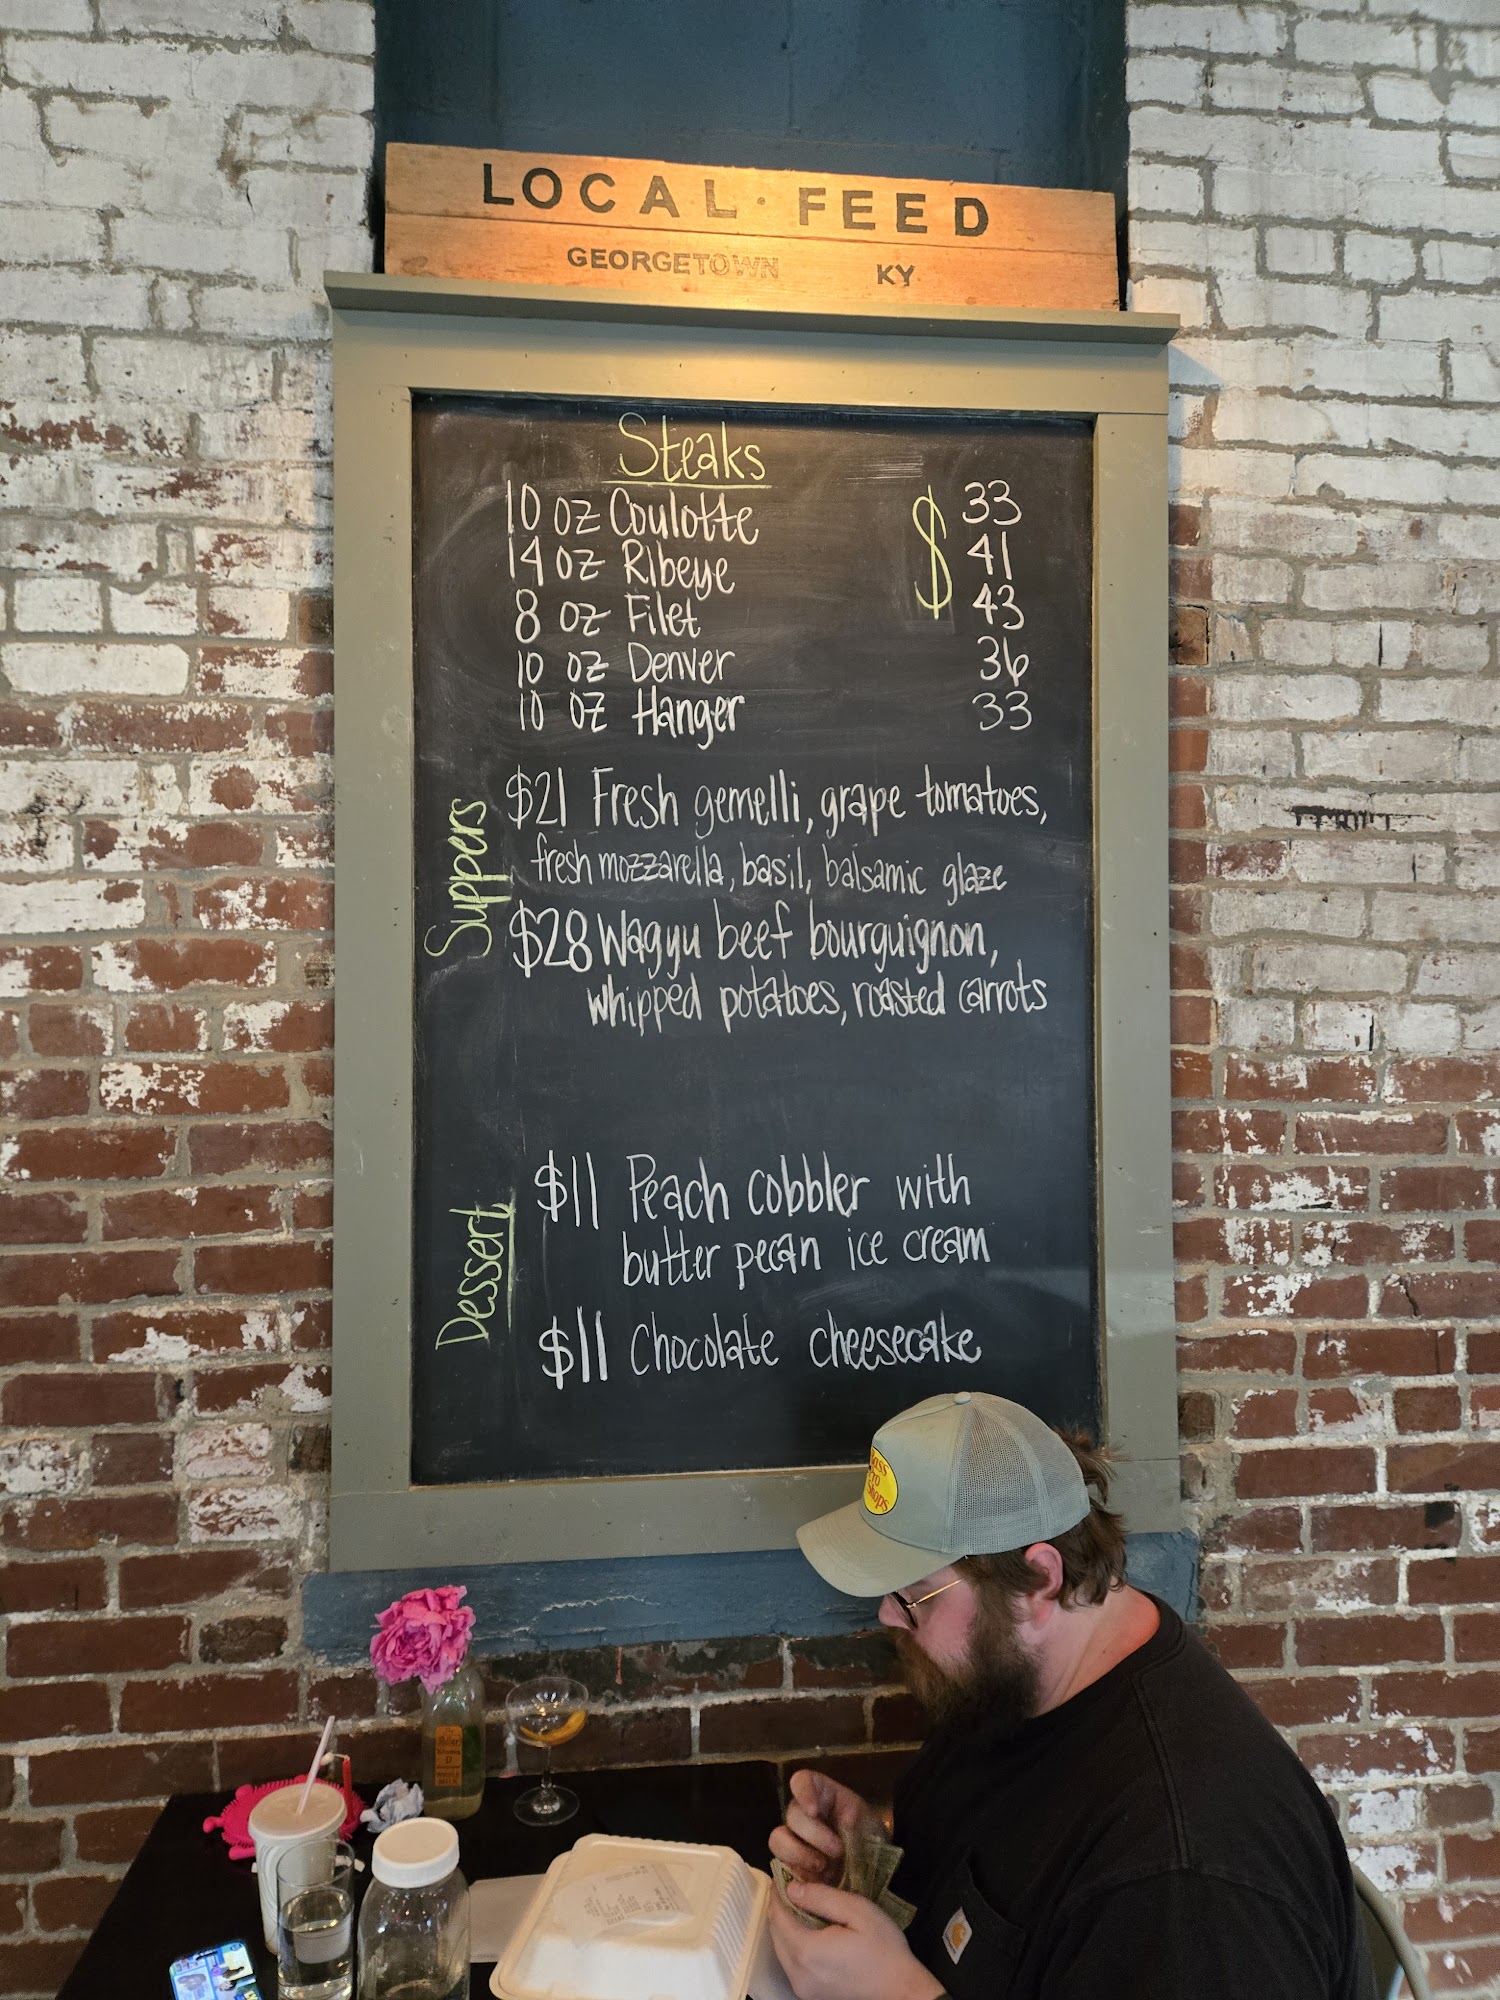 LOCAL · FEED
GEORGETOWN KY
Steaks
10 oz Coulotte $ 33
14 oz Ribeye 41
8 oz Filet 43
10 oz Denver 36
10 oz Hanger 33
Suppers
$21 Fresh gemelli, grape tomatoes,
fresh mozzarella, basil, balsamic glaze
$28 Wagyu beef bourguignon,
whipped potatoes, roasted carrots
Dessert
$11 Peach cobbler with
butter pecan ice cream
$11 Chocolate cheesecake
Bass
Pro
Shops